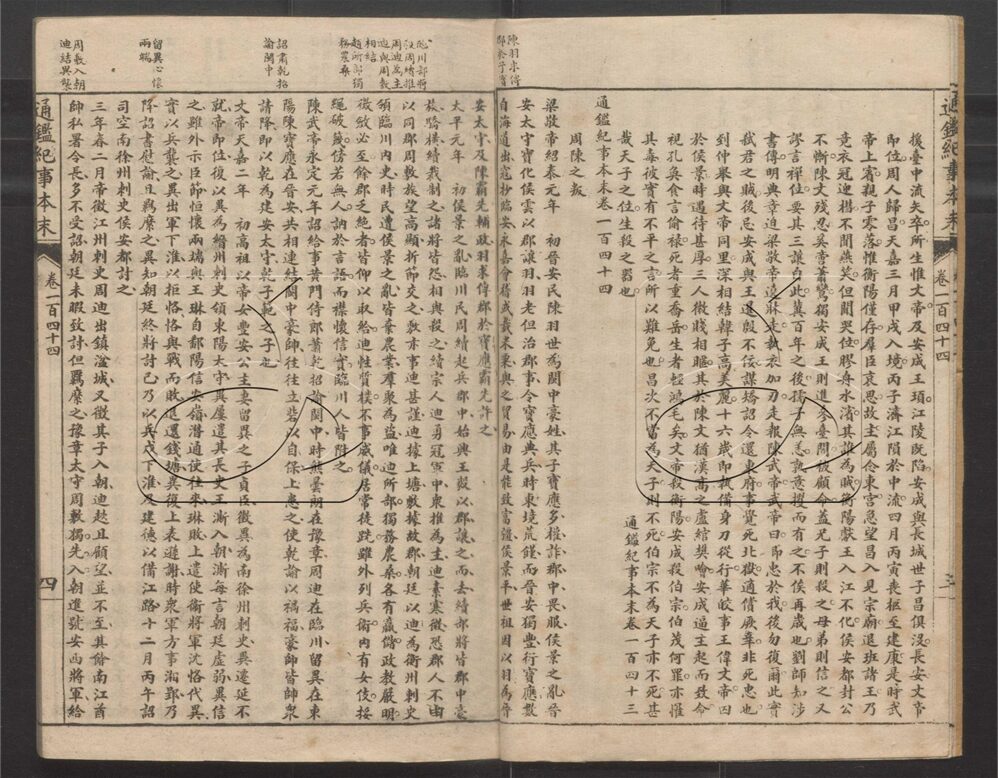 後臺中流矢卒所生惟文帝及安成王頊江陵既陷安成與長城世子昌俱沒長安文帝
即位周人歸昌天嘉三月甲戌入境丙子濟江隕於中流四月丙寅喪柩至建康是時武
帝上賓親子零落惟衡陽僅存羣臣哀思故主屬念東宮急望昌入見宗廟退班諸王乃
竟衣冠迎楷不聞燕笑但聞哭位膠舟水濱其誰為賊衡陽獻王入江不化侯安都封公
不慚陳文殘忍奚啻蕭鸞獨安成王則進爻臺問故顧命蓋兄子則殺之母弟則信之又
謬言禪位要其三讓白此冀百年之後孺子無恙孰意授而有之不俟再歲也劉師知涉
書傳明典章迫梁敬帝遶牀走執衣加刃走報陳武帝武帝曰卿忠於我後勿復爾此實
弒君之賊後忌安成與王暹殷不佞謀矯詔令還東府事覺死北獄適償厥辜非死忠也
到仲舉與文帝同里深相結韓子高美麗十六歲即執備身刀從行華皎事王偉文帝囚
於侯景時遇待甚厚三人微賤相暱其於陳文猶漢高之盧綰樊噲安成逼主起而致命
視孔奐食言偷祿死者重喬岳生者輕鴻毛矣文帝殺衡陽安成殺伯宗伯茂何罪亦摧
其毒故彼實有不平之言所以難免也昌次不當為天子則不死伯宗不為天子亦不死甚
哉天子之位生殺之器也
通鑑紀事本末卷一百四十三
通鑑紀事本末卷一百四十四
周陳之叛
梁敬帝紹泰元年 初晉安民陳羽世為閩中豪姓其子寶應多權詐郡中畏服侯景之亂晉
安太守賓化侯雲以郡讓羽羽老但治郡事令寶應典兵時東境荒饉而晉安獨豐衍寶應數
自海道出寇抄臨安永嘉會稽或載米粟與之貿易由是能致富彊侯景平世祖因以羽為晉
安太守及陳霸先輔政羽求傳郡於寶應霸先許之
太平元年 初侯景之亂臨川民周續起兵郡中始興王毅以郡讓之而去續部將皆郡中豪
族驕橫續裁制之諸將皆怨相與殺之續宗人迪勇冠軍中眾推為主迪素寒微恐郡人不由
以同郡周敷族望高顯折節交之敷亦事迪甚謹迪據上塘敷據故郡朝廷以迪為衡州刺史
領臨川內史時民遭侯景之亂皆棄農業羣聚為盜唯迪所部獨務農桑各有贏儲政教嚴明
徵斂必至餘郡乏絕者皆仰以取給迪性質樸不事威儀居常徒跣雖外列兵衛內有女伎挼
繩破篾傍若無人訥於言語而襟懷信實臨川人皆附之
陳武帝永定元年詔給事黃門侍郎蕭乾招諭閩中時熊曇朗在豫章周迪在臨川留異在東
陽陳寶應在晉安共相連結閩中豪帥往往立砦以自保上患之使乾諭以禍福豪帥皆帥眾
請降即以乾為建安太守乾子範之子也
文帝天嘉二年 初高祖以帝女豐安公主妻留異之子貞臣徵異為南徐州刺史異遷延不
就帝即位復以異為縉州刺史領東陽太守異屢遣其長史王澌入朝澌每言朝廷虛弱異信
之雖外示臣節恒懷兩端與王琳自鄱陽信安嶺潛通使往來琳敗上遣使衛將軍沈恪代異
實以兵襲之異出軍下淮以拒恪恪與戰而敗退還錢塘異復上表遜謝時眾軍方事湘郢乃
降詔書慰諭且羈縻之異知朝廷終將討己乃以兵戍下淮及建德以備江路十二月丙午詔
司空南徐州刺史侯安都討之
三年春二月帝徵江州刺史周迪出鎮湓城又徵其子入朝迪趑且顧望並不至其餘南江酋
帥私署令長多不受詔朝廷未暇致討但羈縻之豫章太守周敷獨先入朝進號安西將軍給
陳羽求傳
郡於子寶
臨川部將
以周續推
周迪為主
迪與周敷
相結
迪所部獨
務農桑
詔蕭乾招
諭閩中
留異心懷
兩端
周敷入朝
迪結異襲
通鑑紀事本末
卷一百四十四
三
通鑑紀事本末
卷一百四十四
四